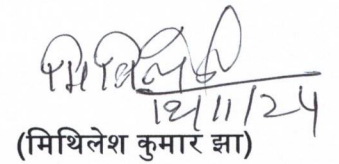 मिथिलेश
12/11/24
(मिथिलेश कुमार झा)